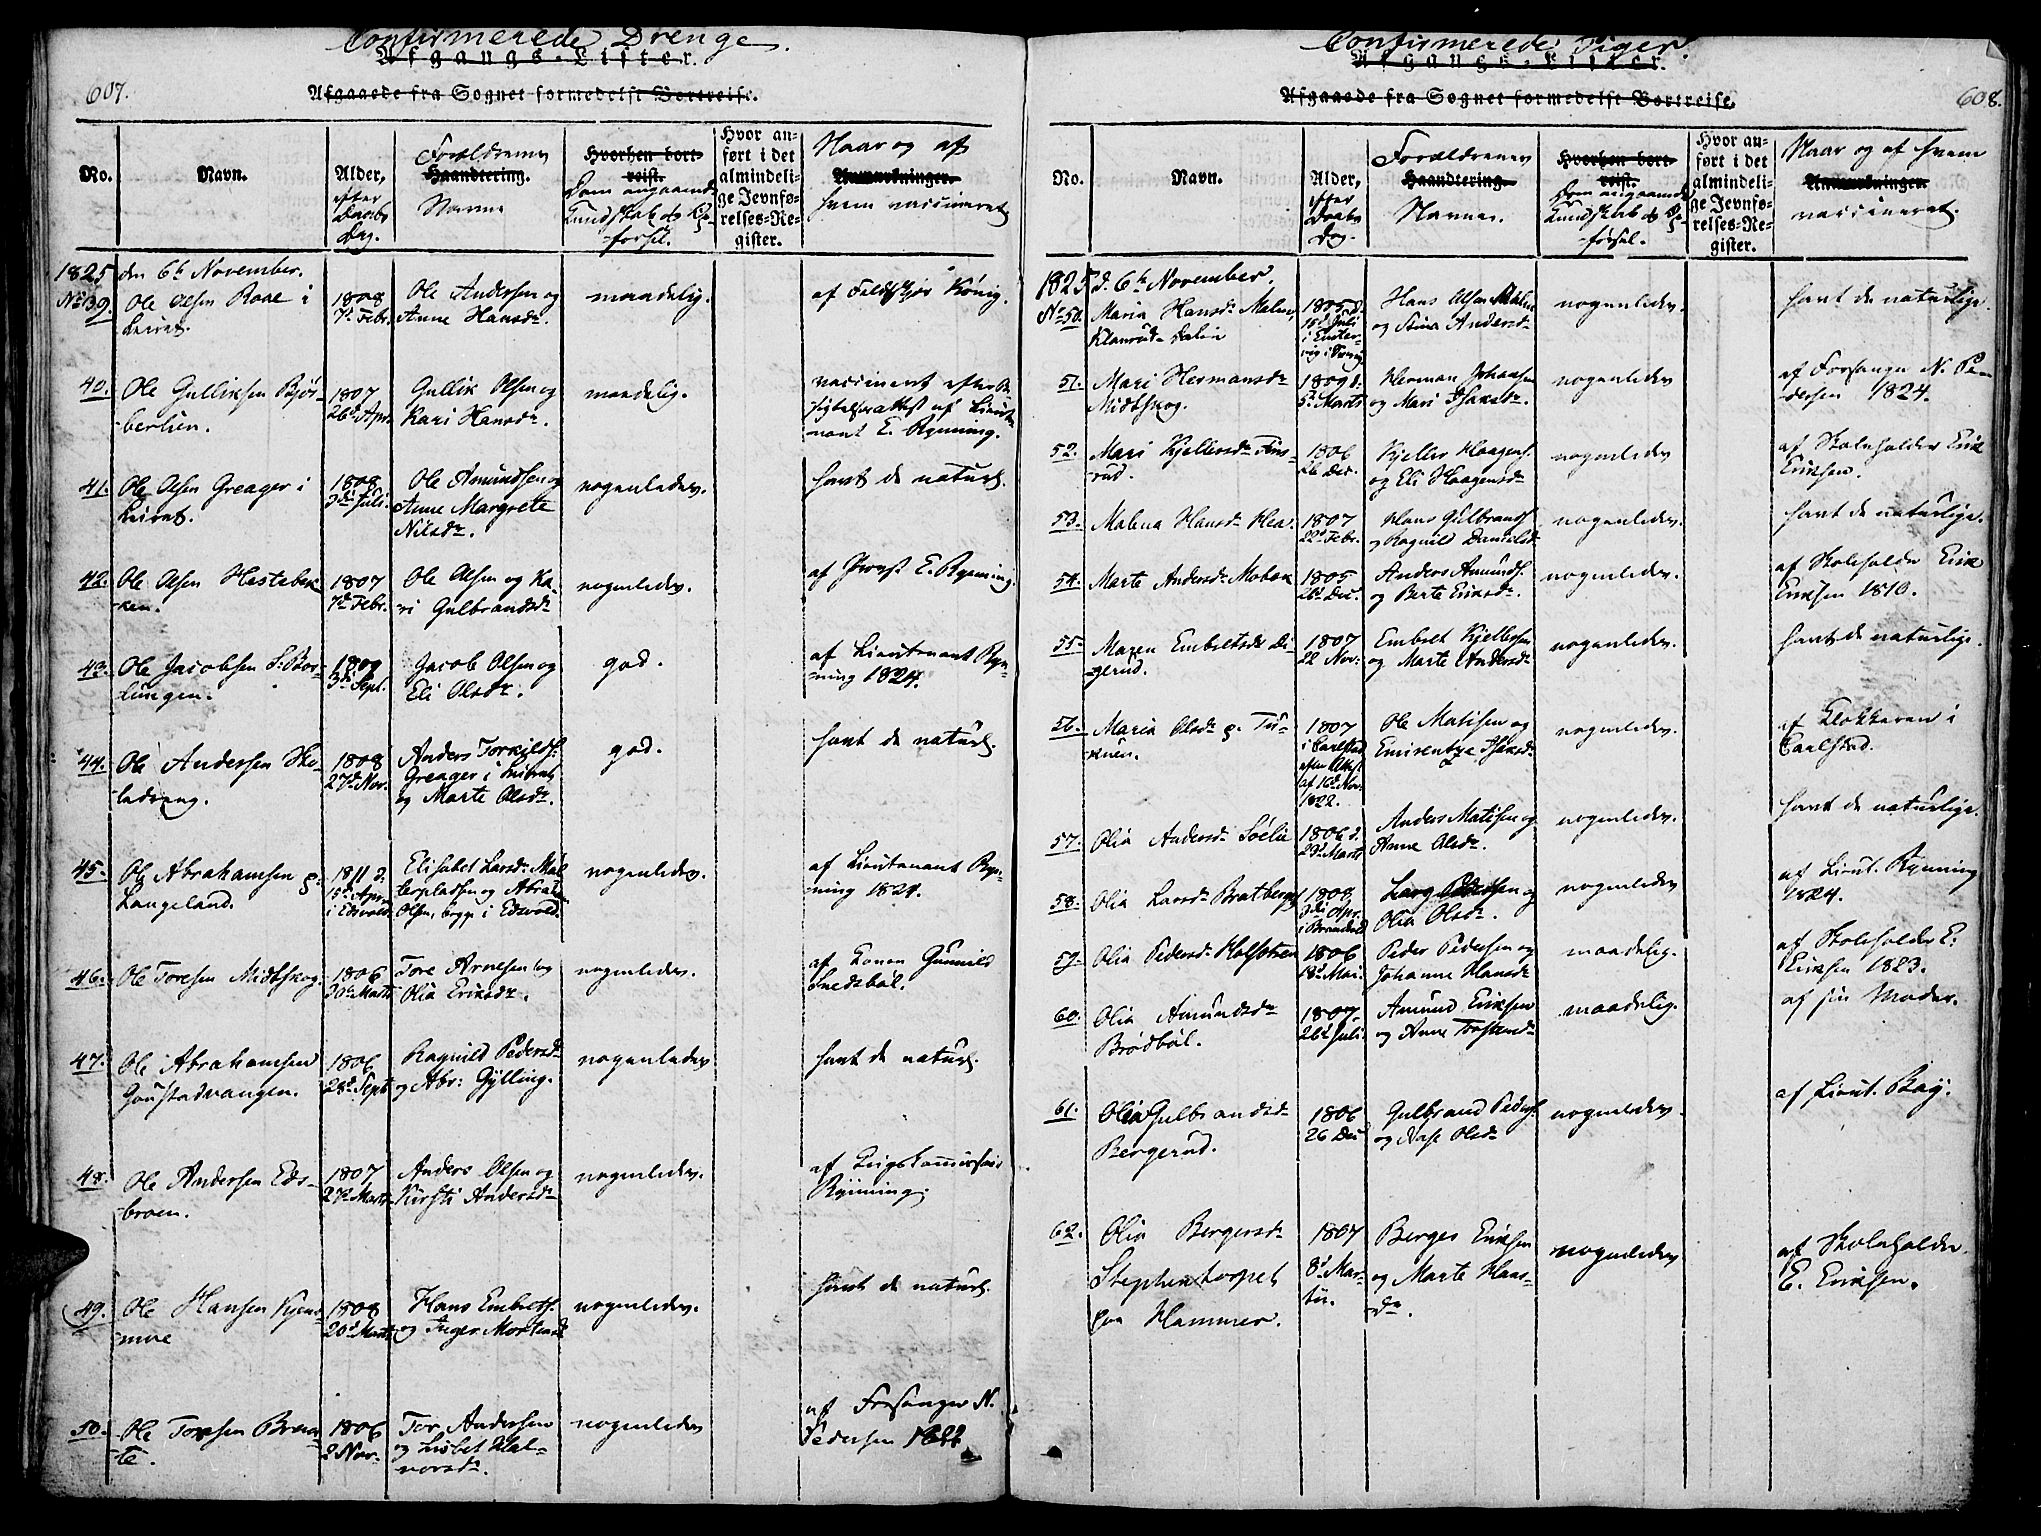 607.
Confirmerede Drenge.
Afgangs-Lister.
Afgaaede fra Sognet formedelst Bortreise.
No.
Navn.
Alder,
efter
Daabs
Dag.
Forældrenes
Haandtering.
Navne
Hvorhen bort-
reist.
Dom angaaende
Kundskab og
Hvor an-
ført i det
almindeli-
ge Jevnfø-
relses-Re-
gister.
Naar og af
Anmærkninger.
hvem vaccineret
1825 den 6te November.
No 39. Ole Olsen Rose i
Leiret.
1808
7d Febr.
Ole Andersen og
Anne Hansdr.
maadelig.
af Feldskjær König.
40. Ole Gulliksen Bjør-
berlien.
1807
26d Apr.
Gullik Olsen og
Kari Hansdr.
maadelig.
vaccineret efter
af Lieut-
nant E. Rynning.
41. Ole Olsen Greager i
Leiret.
1808
3die Juli.
Ole Amundsen og
Anne Margrete
Nilsdr.
nogenledes.
havt de naturl.
42. Ole Olsen Hestebek-
ken.
1807
7de Febr.
Ole Olsen og Ka-
ri Gulbrandsdr
nogenledes.
af Provst E. Rynning.
43. Ole Jacobsen S: Bor-
lungen.
1809
3die Sept.
Jacob Olsen og
Eli Olsdr.
god.
af Lieutenant Ryn-
ning 1824.
44. Ole Andersen Sko-
ladseng.
1808
27de Nov.
Anders Torkilds:
Greager i Leiret
og Marte Olsdr.
god.
havt de naturl.
45. Ole Abrahamsen
Langeland.
1811 d.
15d April
i Edsvold
Elisabet Larsdr
og Abrah:
Olsen, begge i Edsvold.
nogenledes.
af Lieutenant Ryn-
ning 1824.
46. Ole Toresen Midtskog.
1806
30te Marts
Tore Arnesen og
Olia Eriksdr.
nogenledes.
af Konen Gunnild
Sneisbøl.
47. Ole Abrahamsen
Goustadvangen.
1806
28d Sept
Ragnild Pedersdr
og Abr: Gylling.
nogenledes
havt de naturl.
48. Ole Andersen Eds-
broen.
1807
27de Marts
Anders Olsen og
Kirsti Andersdr
nogenledes.
af Krigskommissair
Rynning.
49. Ole Hansen Kjens-
moe
1808
20d Marts
Hans Embrets:
og Inger Mortensdr
nogenledes.
havt de naturl.
50. Ole Torsen Bræn-
te.
1806
2 Nov.
Tor Andersen
og Lisbet Hal-
vorsdr.
nogenledes
af Forsanger N.
Pedersen 1822
608.
Confirmerede Piger.
Afgangs-Lister.
Afgaaede fra Sognet formedelst Bortreise.
No.
Navn.
Alder,
efter
Daabs
Dag.
Forældrenes
Haandtering.
Navne.
Hvorhen bort-
reist.
Dom angaaende
Kundskab og
Hvor an-
ført i det
almindeli-
ge Jevnfø-
relses-Re-
gister.
Naar og af hvem
Anmærkninger.
vaccineret.
1825 d. 6te November.
No 50. Maria Hansdr Malm,
1805 d.
15d Juli
Hans Olsen Malm
og Stina Andersdr
nogenledes.
havt de naturlige.
51. Mari Hermansdr
Midtskog.
1809 d.
5te Marts
Herman Johansen
og Mari Isaksdr.
nogenledes
af Forsanger N. Pe-
dersen 1824.
52. Mari Kjellersdr Fins-
rud.
1806
26 Dec.
Kjeller Haagens:
og Eli Haagensdr
nogenledes
af Skoleholder Erik
Eriksen.
53. Malena Hansdr Hea.
1807
22d Febr.
Hans Gulbrands:
og Ragnild Danielsdr
nogenledes.
havt de naturlige.
54. Marte Andersdr Mobæk
1805
26d Dec.
Anders Amunds:
og Berte Eriksdr.
nogenledes.
af Skoleholder Erik
Eriksen 1810.
55. Maren Embretsdr Di-
gerud.
1807
22 Nov.
Embret Kjellersen
og Marte Andersdr
nogenledes.
havt de naturlige.
56. Maria Olsdr
1807
i Carlstad
efter Attest
af 16d Nov.
1822.
Ole Matisen og
Emerentze Isaksdr
nogenledes.
af Klokkeren i
Carlstad.
57. Olia Andersdr Sølie
1806 d.
29d Marts
Anders Matisen og
Anne Olsdr.
nogenledes.
havt de naturlige.
58. Olia Larsdr Bratberget
1808
3die Apr.
i Brandvold
Lars Pedersen og
Olia Olsdr.
nogenledes
af Lieut. Rynning
1824.
59. Olia Pedersdr Kolstoen
1806
18d Mai.
Peder Pedersen og
Johanne Hansdr
maadelig.
af Skoleholder E:
Eriksen 1823.
60. Olia Amundsdr
Brødbøl.
1807
26d Juli.
Amund Eriksen
og Anne Torstensdr
maadelig.
af sin Moder.
61. Olia Gulbrandsdr
Bergerud.
1806
26 Dec
Gulbrand Peders:
og Aase Olsdr
nogenledes.
af Lieut. Bay.
62. Olia Bergersdr
Stephentorpet
paa Hammer.
1807
8d Mar-
tii.
Berger Eriksen
og Marte Hans-
dr.
nogenledes
af Skoleholder
E. Eriksen.